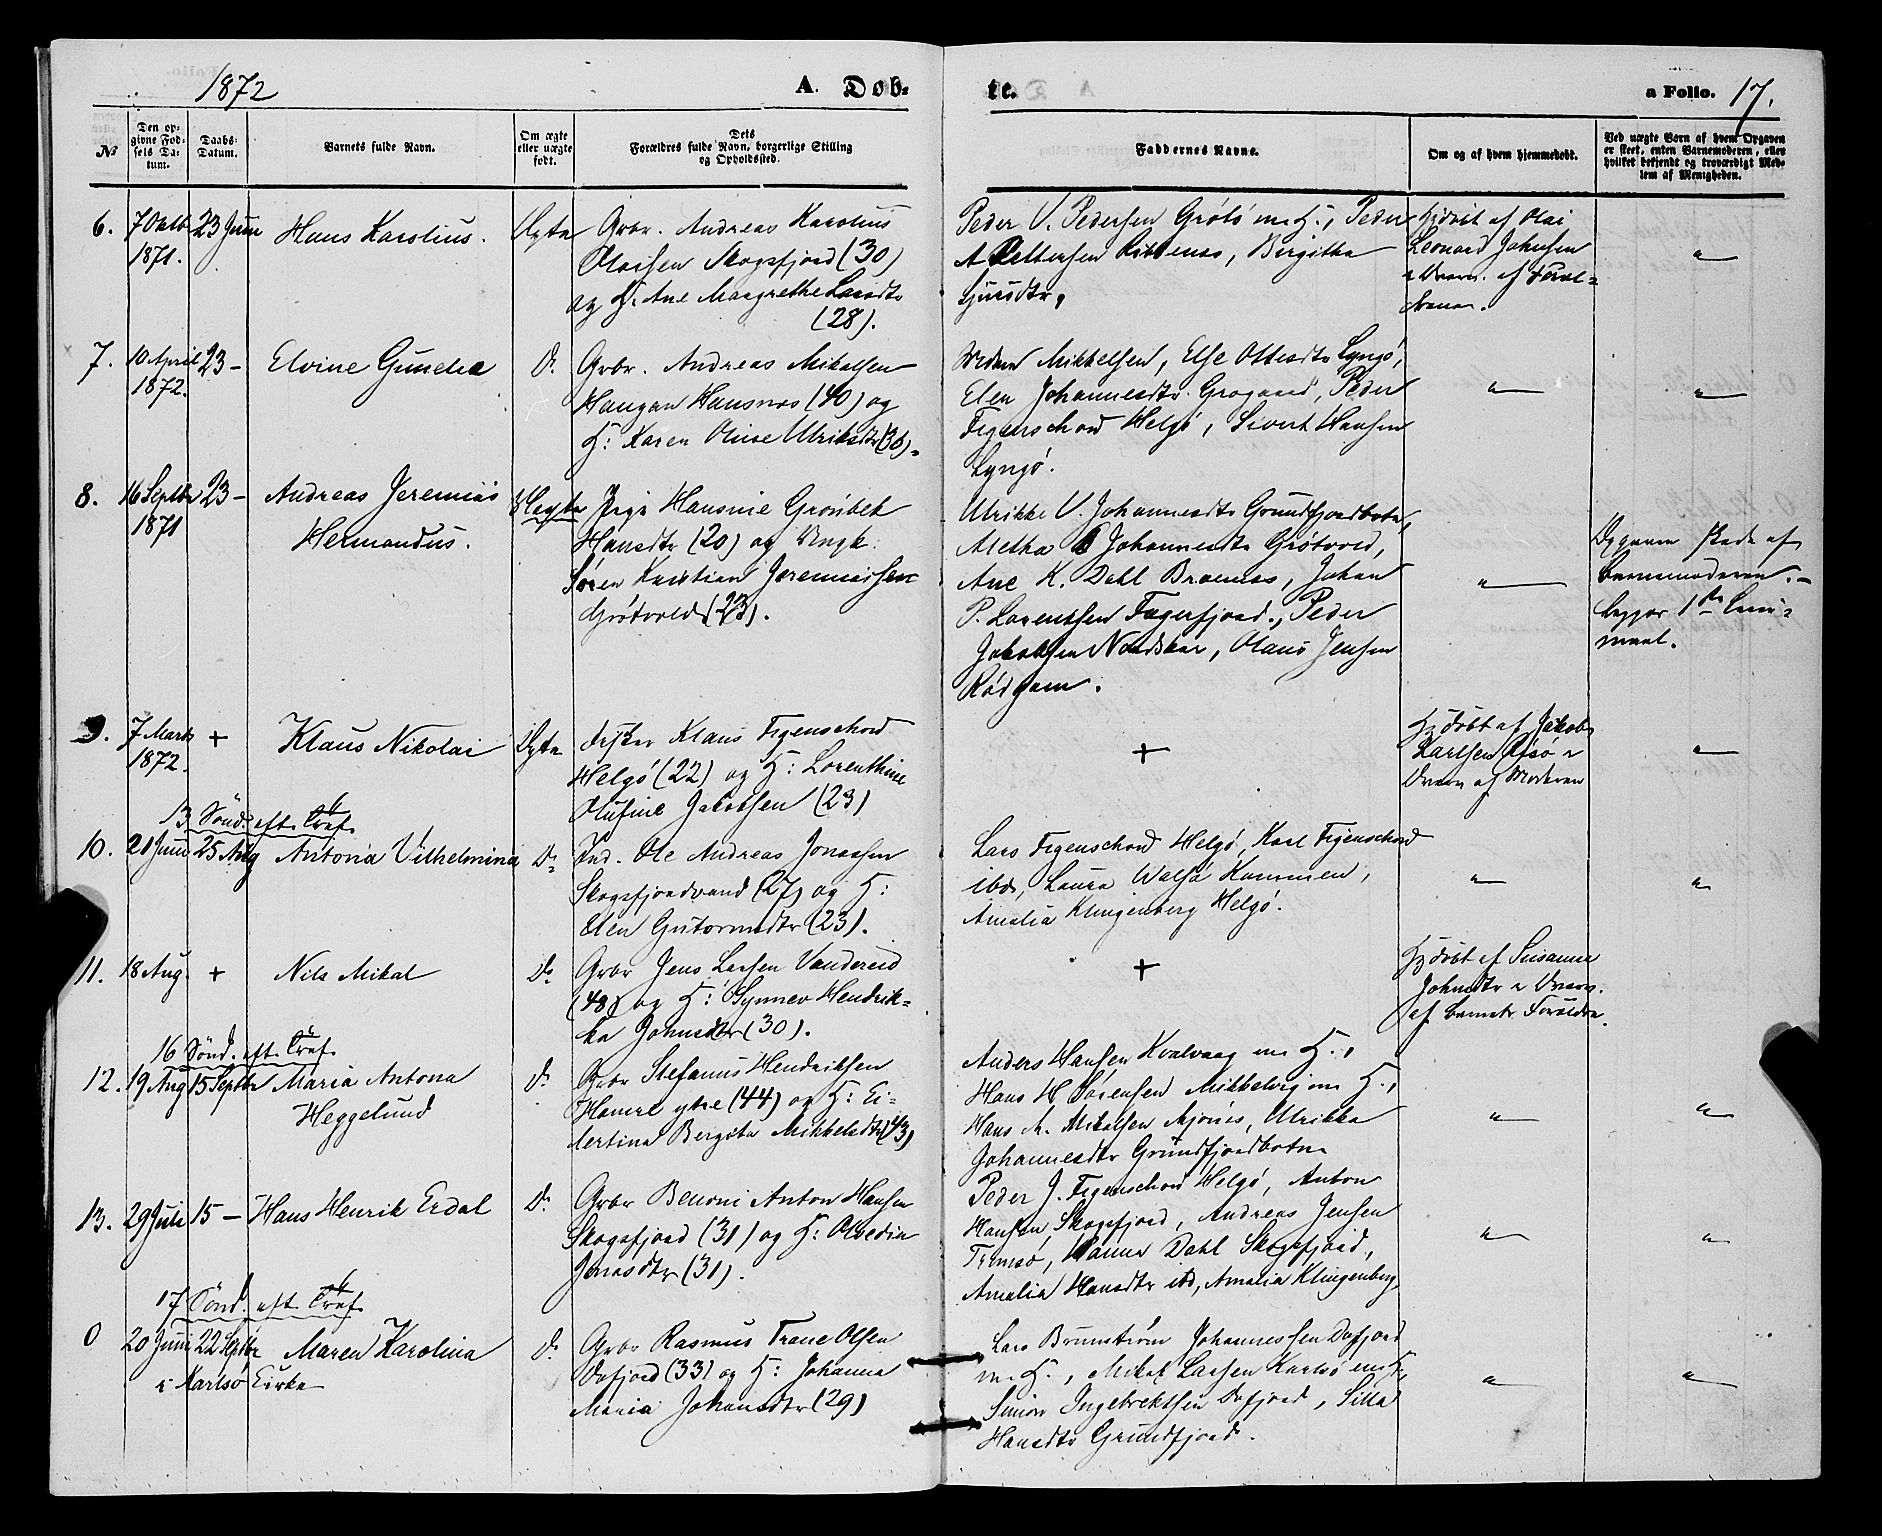 1872
A. Døb-
te.
a Folio. 17.
№
Den op-
givne Fød-
sels Da-
tum.
Daabs-
Datum.
Barnets fulde Navn.
Om ægte
eller uægte
født.
Dets
Forældres fulde Navn, borgerlige Stilling
og Opholdssted.
Faddernes Navne.
Om og af hvem hjemmedøbt.
Ved uægte Børn af hvem Opgaven
er skeet, enten Barnemoderen, eller
hvilket bekjendt og troværdigt Med-
lem af Menigheden.
6.
7 Oktb
1871.
23 Juni
Hans Karolius.
Ægte
Grbr. Andreas Karolius
Olaisen Skogsfjord (30)
og H. Ane Margrethe Larsdtr
(28).
Peder V. Pedersen Grøtø m H., Peder
A Pettersen, Birgitha
Hjdøbt af Olai
Leonard Johnsen
af Foræl-
drene.
"
7.
10 April
1872.
23 -
Elvine Gunelie
D.
Grbr. Andreas Mikalsen
Haugan Hansnæs (40) og
H: Karen Oluise Ulriksdtr (36).
Mikkelsen, Else Ottesdtr Lyngø,
Elen Johannesdtr Grøgaard, Peder
Figenschou Helgø, Sivert Hansen
Lyngø.
"
"
8.
16 Septbr
1871
23 -
Andreas Jeremias
Hermandus.
Uægte
Pige Hansine Grønbek
Hansdtr (20) og Ungk.
Søren Kristian Jeremiassen
Grøtvold (23).
Ulrikke V. Johannesdtr Grundfjordbotn,
Aletha Johannesdtr Grøtvold,
Ane K. Dahl Brænnes, Johan
P. Lorentsen Fagerfjord., Peder
Jakobsen, Olaus Jensen
"
Opgaven skede af
Barnemoderen.-
begges 1ste Leier-
maal.
9.
7 Marts
1872.
+
Klaus Nikolai
Ægte
Fisker Klaus Figenschou
Helgø (22) og H: Lorenthine
Olufine Jakobsen (23)
+
Hjdøbt af Jakob
Karlsen
af Moderen
"
13 Sønd. eft. Tref.
10.
21 Juni
25 Aug
Antona Vilhelmina
Do
Ind. Ole Andreas Jonassen
Skogsfjordvand (27) og H:
Elen Gutormsdtr (23).
Lars Figenschou Helgø, Karl Figenschou
ibd, Laura Walsø Kammen,
Amalia Klingenberg Helgø.
"
"
11.
18 Aug.
+
Nils Mikal
Do
Grbr Jens Larsen Vandereid
(48) og H: Synnev Hendrik-
ka Johnsdtr (30).
+
Hjdøbt af Susanna
Johnsdtr
af Barnets Forældre.
16 Sønd. eft. Tref.
12.
19 Aug
15 Septbr
Maria Antona
Heggelund
D.
Grbr Stefanus Hendriksen
Hamre ytre (44) og H: El-
lertina Bergita Mikkelsdtr (43)
Anders Hansen Kvalvaag m H.,
Hans H Sørensen Mikkelvig m H.,
Hans M. Mikalsen Mjønes, Ulrikka
Johannesdtr Grundfjordbotn
"
"
13.
29 Juli
15 -
Hans Henrik Erdal
D.
Grbr Benoni Anton Hansen
Skogsfjord (31) og H: Olvedia
Jonasdtr (31).
Peder J. Figenschou Helgø, Anton
Hansen Skogsfjord, Andreas Jensen
Tromsø, Hanna Dahl Skogsfjord,
Amalia Hansdtr ibd, Amalia Klingenberg
"
"
17 Sønd. eft. Tref.
0
20 Juni
22 Septbr
Maren Karolina
i Karlsø Kirke
D.
Grbr Rasmus Trane Olsen
Dafjord (33) og H: Johanna
Maria Johansdtr (29)
Lars Brunstrøm Johannessen Dafjord
m H., Mikal Larsen Karlsø m H.,
Simon Ingebrektsen Dafjord, Silla
Hansdtr Grundfjord.
"
"